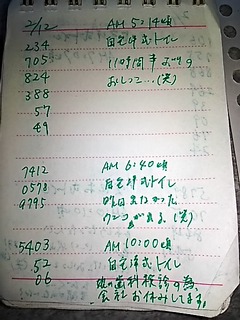 2/12 AM 5:14頃
234 自宅洋式トイレ
705 11時間半ぶりの
824 おしっこ…(笑)
388
57
49
7412 AM 6:40頃
0578 自宅洋式トイレ
9795 昨日出なかった
ウンコが出る(笑)
5403 AM 10:00頃
52 自宅洋式トイレ
06 歯科検診の為、
会社お休みしてます。